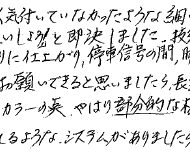 く気付いていなかったような細
いしょう!と即決しました。技
りに仕上がり、停車信号の間、
お願いできると思いましたら、長
カラーの英、やはり部分的な
るような、システムがありました